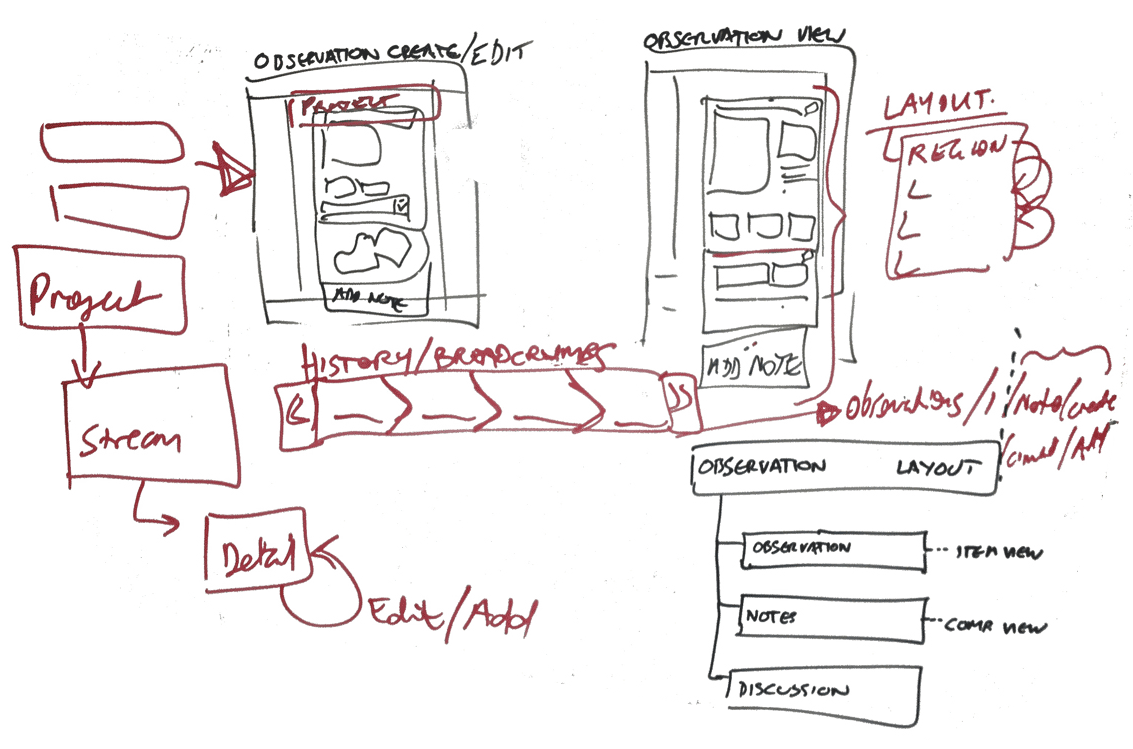 OBSERVATION CREATE/EDIT
PROJECT
ADD NOTE
OBSERVATION VIEW
ADD NOTE
LAYOUT.
REGION
Project
Stream
Detail
Edit/Add
HISTORY/BREADCRUMBS
Observations/1/Note/create
/Add
OBSERVATION LAYOUT
OBSERVATION
ITEM VIEW
NOTES
COMP VIEW
DISCUSSION